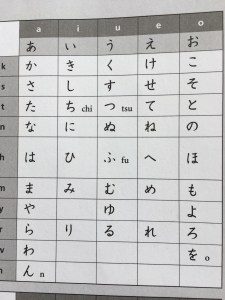 a i u e o
あ い う え お
k か き く け こ
s さ し す せ そ
t た ち chi つ tsu て と
n な に ぬ ね の
h は ひ ふ fu へ ほ
m ま み む め も
y や ゆ よ
r ら り る れ ろ
w わ を o
n ん n